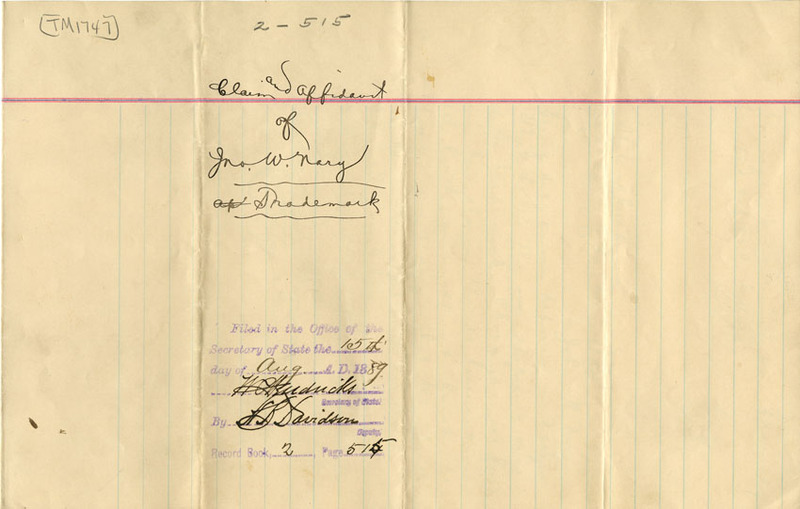 [TM1747]
2-515
Claim and Affidavit
of
Jno. W. Nary
Trademark
Filed in the Office of the
Secretary of State the 15th
day of Aug A.D. 1889
W C Hendricks
Secretary of State.
By Davidson
Deputy.
Record Book, 2, Page 515